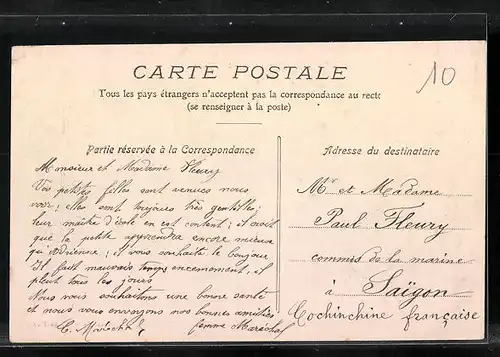 CARTE POSTALE
10
Tous les pays étrangers n'acceptent pas la correspondance au recto
(se renseigner à la poste)
Partie réservée à la Correspondance
Monsieur et Madame Fleury
Vos petites filles sont venues nous
voir; elles sont toujours très gentilles;
leur maître d'école en est content; il croit
que la petite apprendra encore mieux
qu'Adrienne; il vous souhaite le bonjour
Il fait mauvais temps en ce moment, il
pleut tous les jours
Nous vous souhaitons une bonne santé
et nous vous envoyons nos bonnes amitiés
femme Maréchal
Adresse du destinataire
Mr et Madame
Paul Fleury
commis de la marine
à Saïgon
Cochinchine française